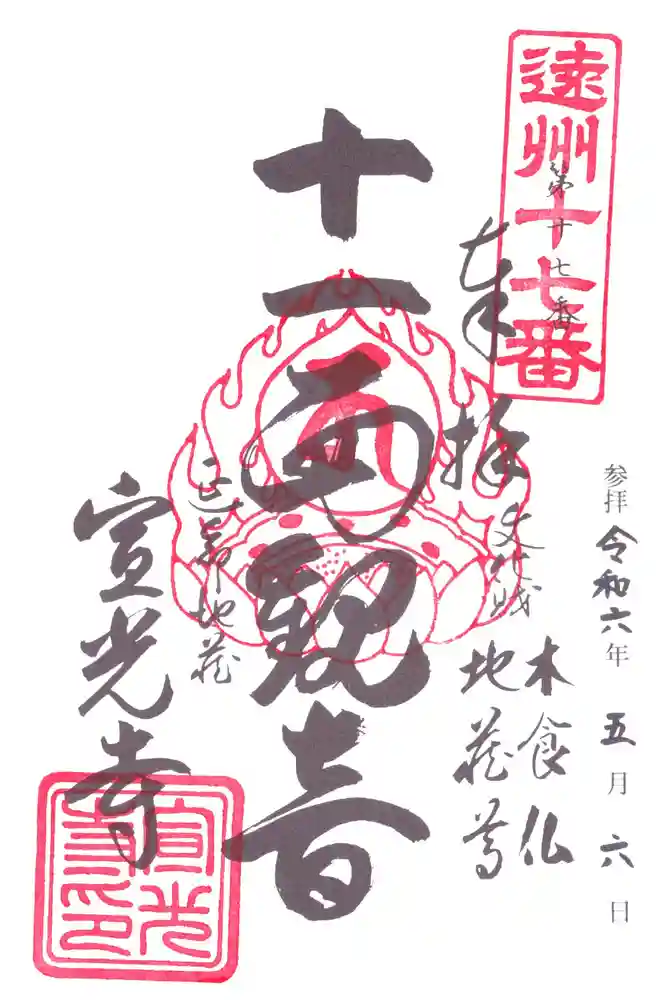 参拝 令和六年 五月 六日
遠州十七番
第十七番
奉拝
文化財
木食仏
地蔵尊
十一面観音
延命地蔵
宣光寺
宣光寺印